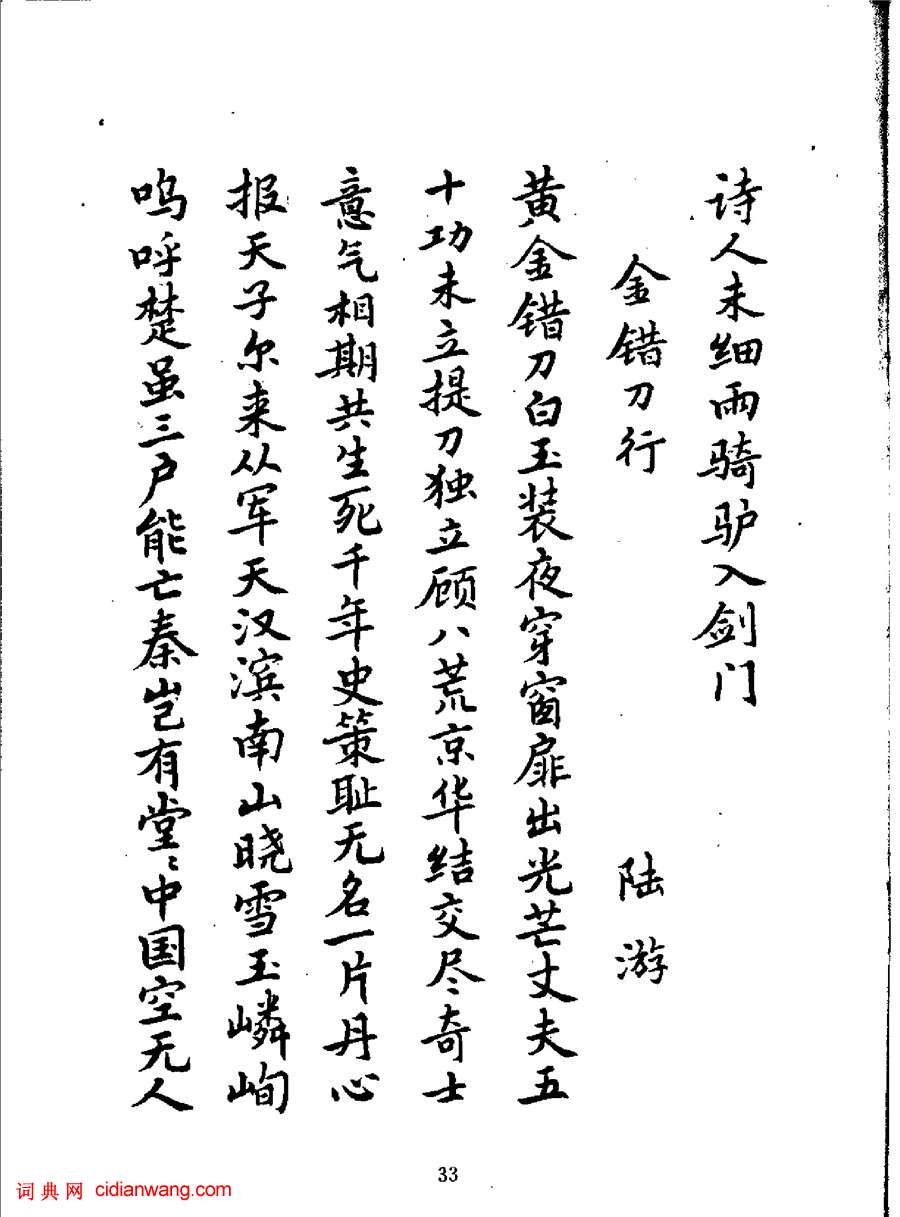 诗人未细雨骑驴入剑门
金错刀行 陆游
黄金错刀白玉装夜穿窗扉出光芒丈夫五
十功未立提刀独立顾八荒京华结交尽奇士
意气相期共生死千年史策耻无名一片丹心
报天子尔来从军天汉滨南山晓雪玉嶙峋
呜呼楚虽三户能亡秦岂有堂〻中国空无人
33
词典网 cidianwang.com